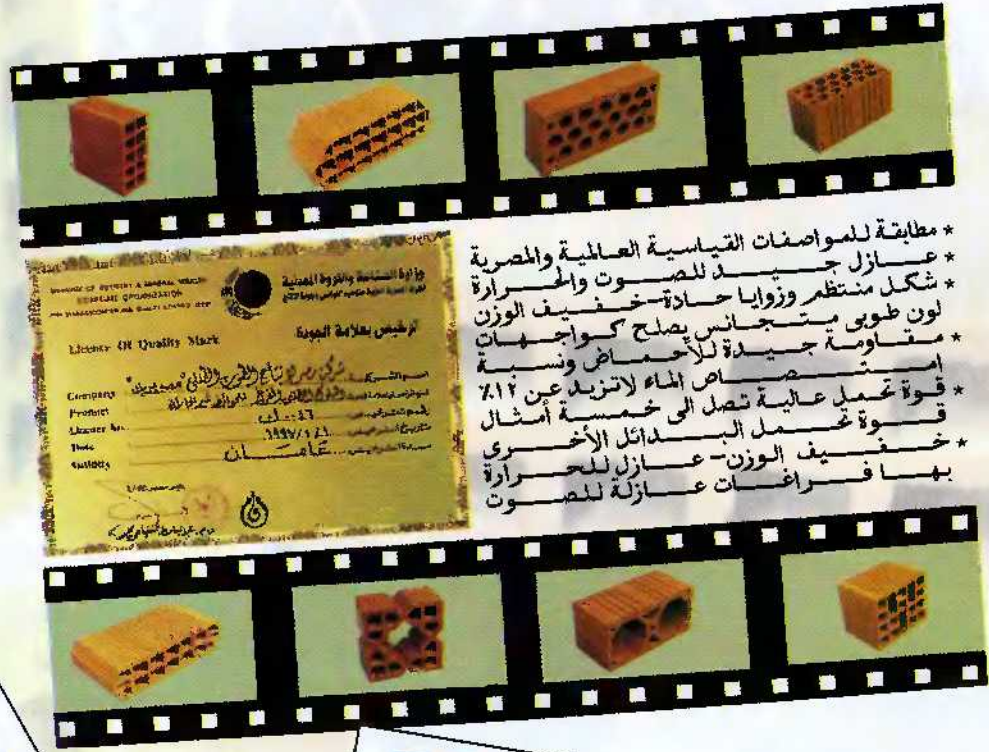 * مطابقة للمواصفات القياسية العالمية والمصرية
* عازل جيد للصوت والحرارة
* شكل منتظم وزوايا حادة - خفيف الوزن
لون طوبى متجانس يصلح كواجهات
* مقاومة جيدة للأحماض ونسبة
امتصاص الماء لاتزيد عن ١٢٪
* قوة تحمل عالية تصل الى خمسة أمثال
قوة تحمل البدائل الأخرى
* خفيف الوزن - عازل للحرارة
بها فراغات عازلة للصوت
وزارة الصناعة والثروة المعدنية
MINISTRY OF INDUSTRY & MINERAL WEALTH
ترخيص بعلامة الجودة
Licence Of Quality Mark
Company
اسم الشركة
Product
Licence No.
Date
١٩٩٧/١/١
Validity
عامان